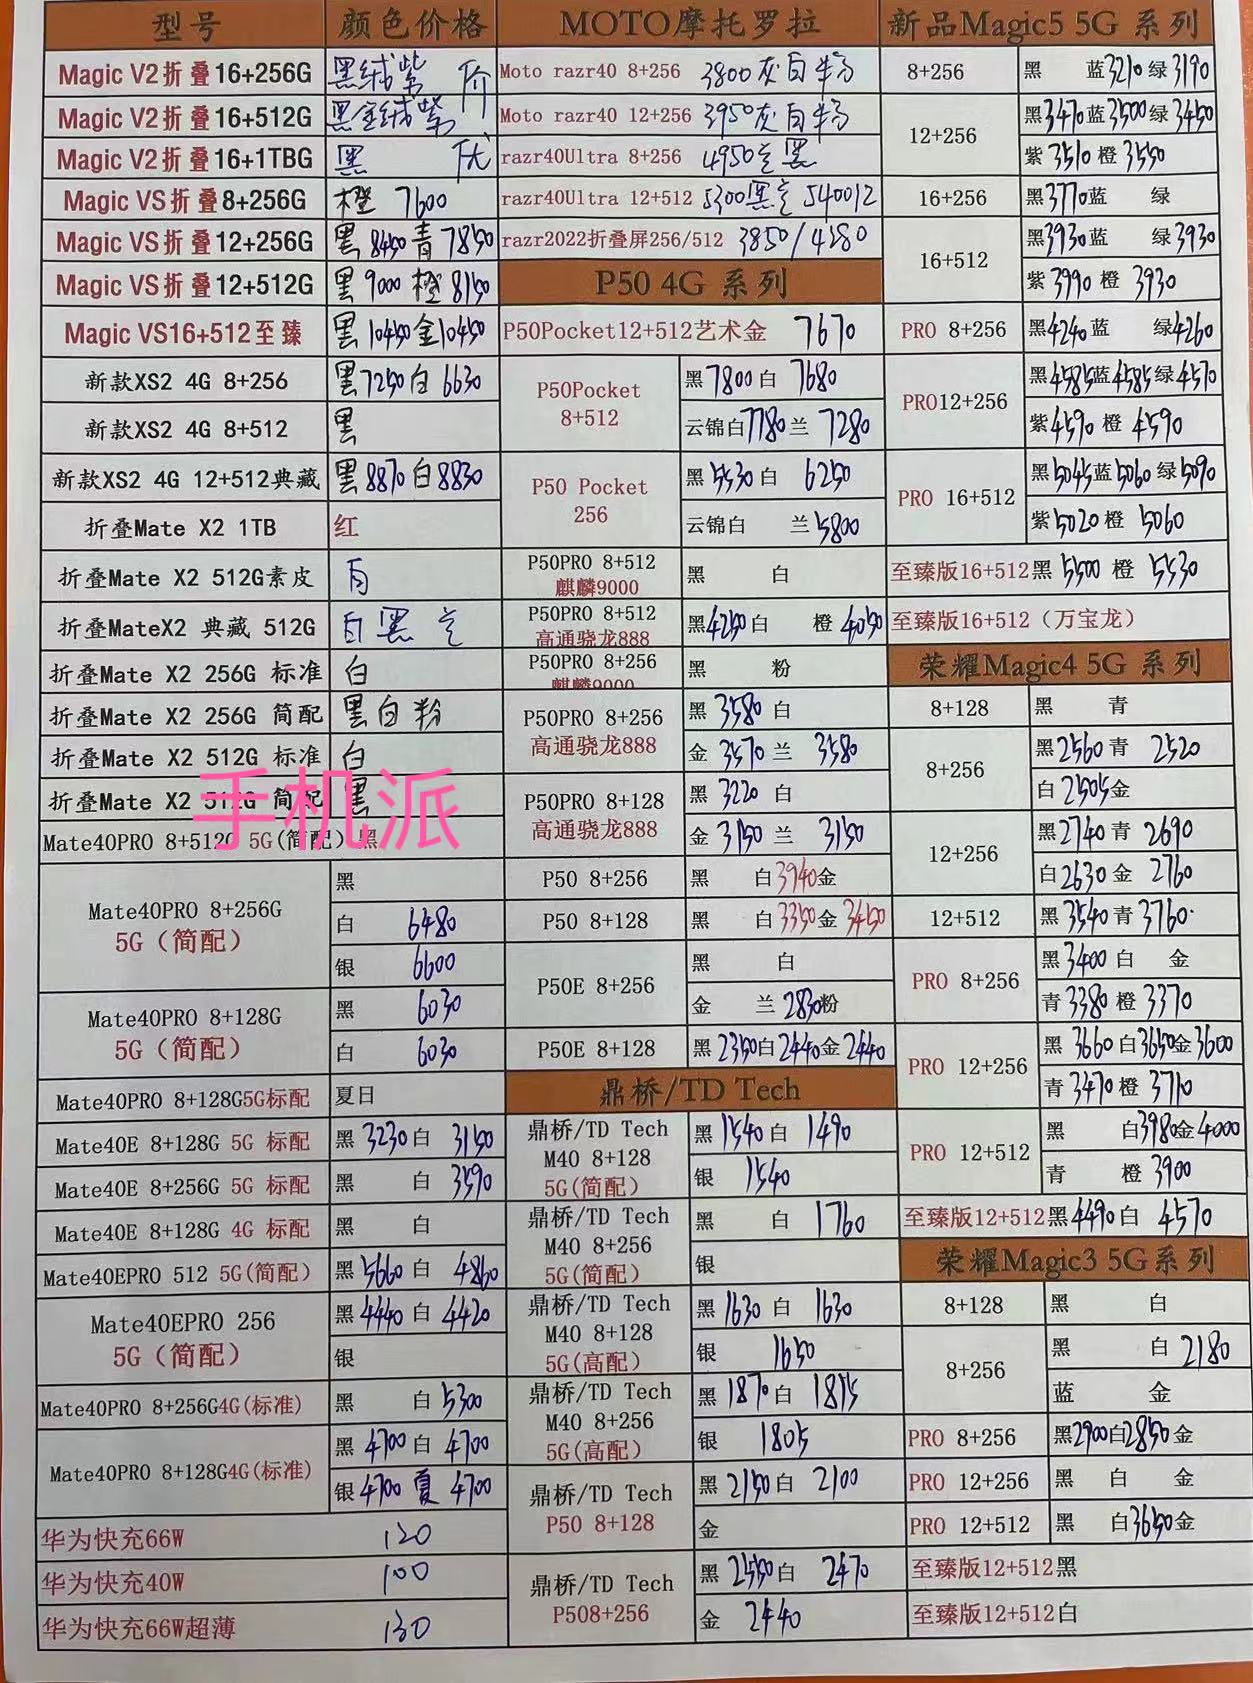 型号 颜色价格
Magic V2折叠16+256G 黑绒紫
Magic V2折叠16+512G 黑金绒紫
Magic V2折叠16+1TBG 黑
Magic VS折叠8+256G 橙 7600
Magic VS折叠12+256G 黑8450青7850
Magic VS折叠12+512G 黑9000橙8150
Magic VS16+512至臻 黑10450金10450
新款XS2 4G 8+256 黑7250白6630
新款XS2 4G 8+512 黑
新款XS2 4G 12+512典藏 黑8870白8830
折叠Mate X2 1TB 红
折叠Mate X2 512G素皮
折叠MateX2 典藏 512G 白黑
折叠Mate X2 256G 标准 白
折叠Mate X2 256G 简配 黑白粉
折叠Mate X2 512G 标准 白
折叠Mate X2 512G 简配 黑
手机派
Mate40PRO 8+512G 5G(简配) 黑
Mate40PRO 8+256G
5G（简配）
黑
白 6480
银 6600
Mate40PRO 8+128G
5G（简配）
黑 6030
白 6030
Mate40PRO 8+128G5G标配 夏日
Mate40E 8+128G 5G 标配 黑3230白 3150
Mate40E 8+256G 5G 标配 黑 白 3590
Mate40E 8+128G 4G 标配 黑 白
Mate40EPRO 512 5G(简配) 黑5660白 4860
Mate40EPRO 256
5G（简配）
黑4440白4420
银
Mate40PRO 8+256G4G(标准) 黑 白5300
Mate40PRO 8+128G4G(标准)
黑4700白4700
银4700夏4700
华为快充66W 120
华为快充40W 100
华为快充66W超薄 130
MOTO摩托罗拉
Moto razr40 8+256 3800灰白
Moto razr40 12+256 3950灰白
razr40Ultra 8+256 4950 黑
razr40Ultra 12+512 5300黑
razr2022折叠屏256/512 3850/4380
P50 4G 系列
P50Pocket12+512艺术金 7670
P50Pocket
8+512
黑7800白 7680
云锦白7780兰 7280
P50 Pocket
256
黑5530白 6250
云锦白 兰5800
P50PRO 8+512
麒麟9000
黑 白
P50PRO 8+512
高通骁龙888
黑4250白 橙4050
P50PRO 8+256
麒麟9000
黑 粉
P50PRO 8+256
高通骁龙888
黑3580白
金3570兰3580
P50PRO 8+128
高通骁龙888
黑3220白
金3150兰 3150
P50 8+256 黑 白3940金
P50 8+128 黑 白3350金3450
P50E 8+256
黑 白
金 兰2830粉
P50E 8+128 黑2350白2440金2440
鼎桥/TD Tech
鼎桥/TD Tech
M40 8+128
5G(简配)
黑1540白 1490
银 1540
鼎桥/TD Tech
M40 8+256
5G(简配)
黑 白 1760
银
鼎桥/TD Tech
M40 8+128
5G(高配)
黑1630白 1630
银 1650
鼎桥/TD Tech
M40 8+256
5G(高配)
黑1870白 1815
银 1805
鼎桥/TD Tech
P50 8+128
黑2150白 2100
金
鼎桥/TD Tech
P508+256
黑2550白 2470
金 2440
新品Magic5 5G 系列
8+256 黑 蓝3210绿3190
12+256
黑3470蓝3500绿3450
紫3510橙3550
16+256 黑3770蓝 绿
16+512
黑3930蓝 绿3930
紫3990橙 3930
PRO 8+256 黑4240蓝 绿4260
PRO12+256
黑4585蓝4585绿4570
紫4590橙4590
PRO 16+512
黑5045蓝5060绿5090
紫5020橙 5060
至臻版16+512黑 5500 橙 5530
至臻版16+512（万宝龙）
荣耀Magic4 5G 系列
8+128 黑 青
8+256
黑2560青 2520
白2505金
12+256
黑2740青 2690
白2630金 2760
12+512 黑3540青3760
PRO 8+256
黑3400白 金
青3380橙3370
PRO 12+256
黑3660白3650金3600
青3470橙3710
PRO 12+512
黑 白3980金4000
青 橙3900
至臻版12+512黑4490白 4570
荣耀Magic3 5G系列
8+128 黑 白
8+256
黑 白2180
蓝 金
PRO 8+256 黑2900白2850金
PRO 12+256 黑 白 金
PRO 12+512 黑 白3650金
至臻版12+512黑
至臻版12+512白